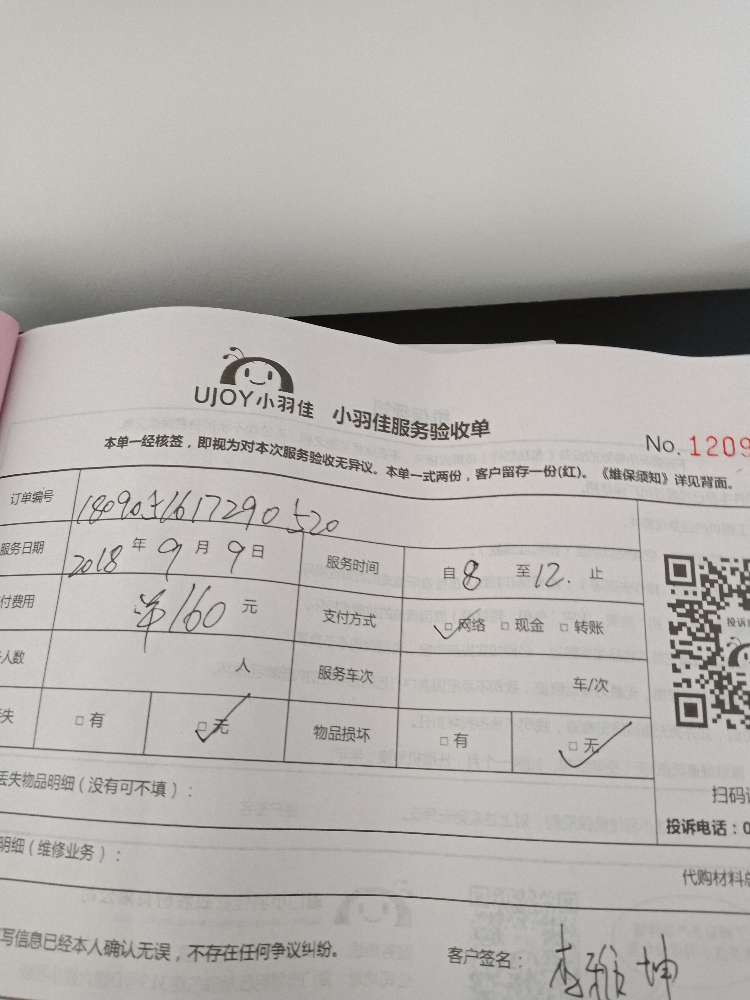 UJOY小羽佳 小羽佳服务验收单
No. 1209
本单一经核签，即视为对本次服务验收无异议。本单一式两份，客户留存一份(红)。《维保须知》详见背面。
订单编号
服务日期 2018 年 9 月 9 日 服务时间 自 8 至 12. 止
付费用 160 元 支付方式 ☑ 网络 □ 现金 □ 转账
人数 人 服务车次 车/次
失 □ 有 ☑ 无 物品损坏 □ 有 ☑ 无
丢失物品明细（没有可不填）：
扫码
投诉电话：0
明细（维修业务）：
代购材料
写信息已经本人确认无误，不存在任何争议纠纷。
客户签名： 李雅坤